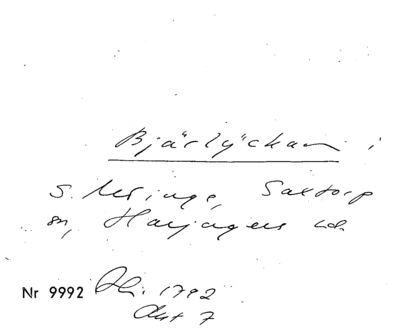 Bjärlyckan i
S. Möinge, Saxtorp
sn, Harjagers hd.
Nr 9992 1792
Akt 7